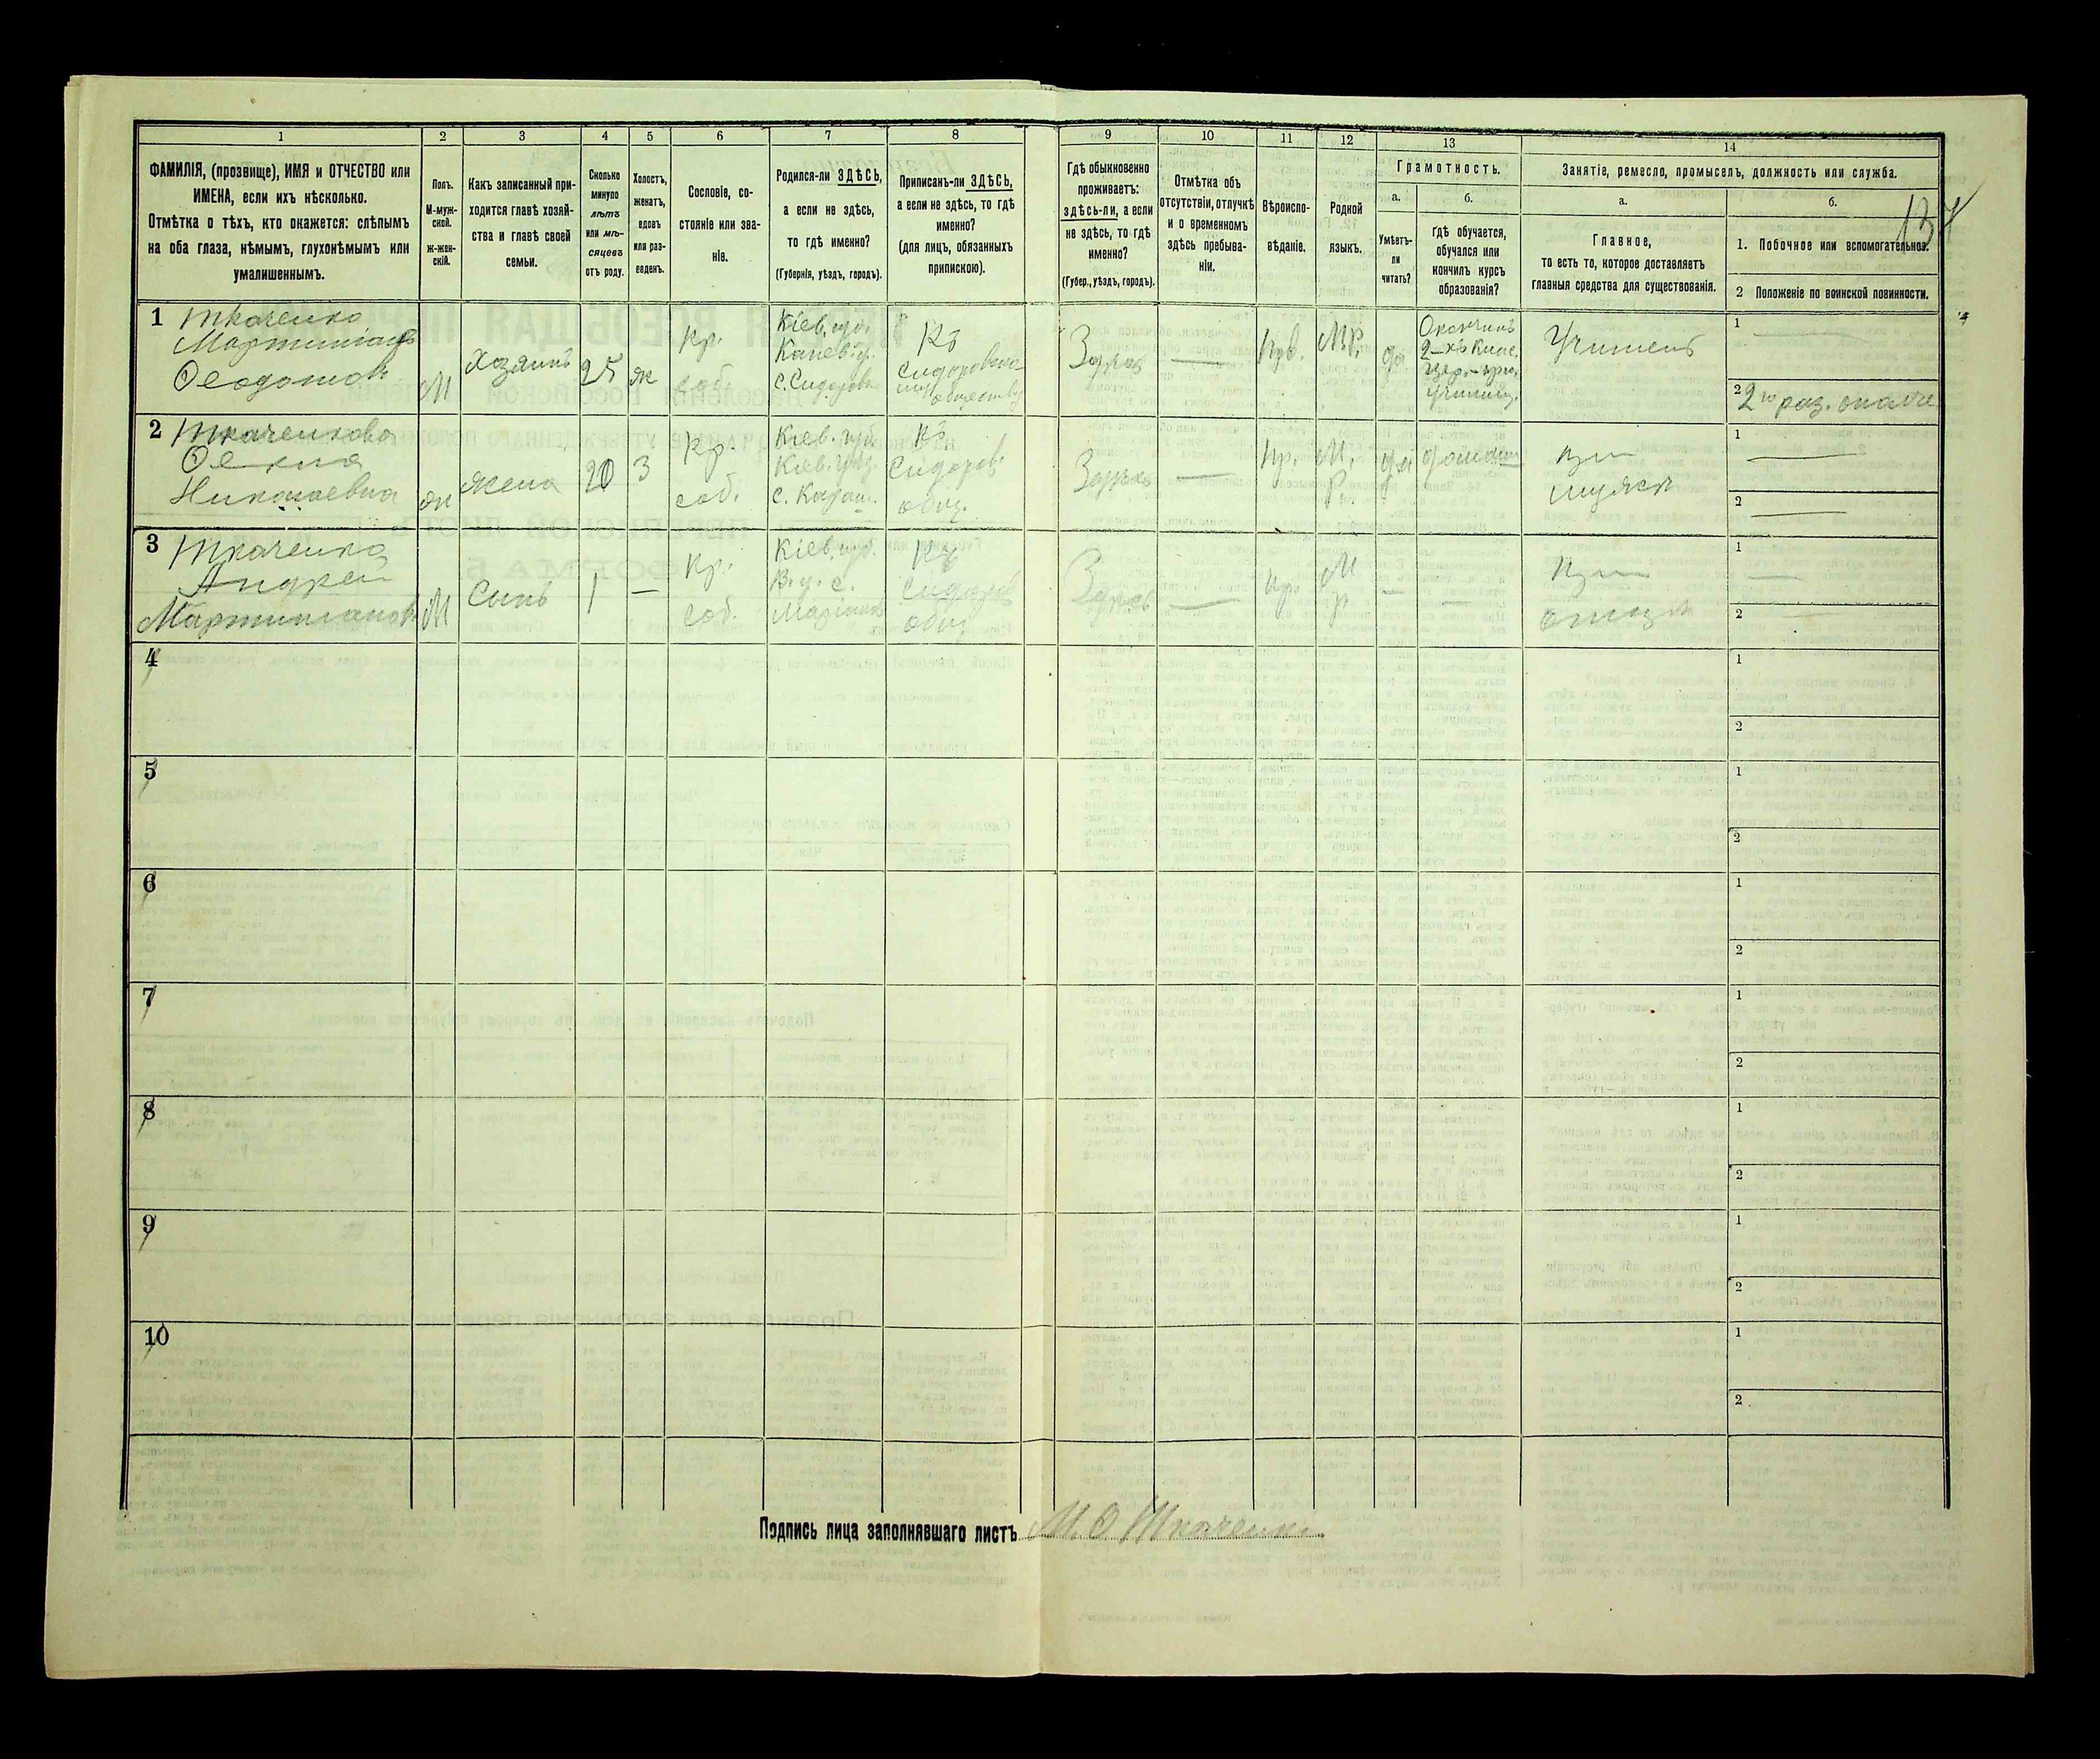 1
ФАМИЛІЯ, (прозвище), ИМЯ и ОТЧЕСТВО или
ИМЕНА, если ихъ нѣсколько.
Отмѣтка о тѣхъ, кто окажется: слѣпымъ
на оба глаза, нѣмымъ, глухонѣмымъ или
умалишеннымъ.
2
Полъ.
М-муж-
ской.
ж-жен-
скій.
3
Какъ записанный при-
ходится главѣ хозяй-
ства и главѣ своей
семьи.
4
Сколько
минуло
лѣтъ
или мѣ-
сяцевъ
отъ роду.
5
Холостъ,
женатъ,
вдовъ
или раз-
веденъ.
6
Сословіе, со-
стояніе или зва-
ніе.
7
Родился-ли ЗДѢСЬ,
а если не здѣсь,
то гдѣ именно?
(Губернія, уѣздъ, городъ).
8
Приписанъ-ли ЗДѢСЬ,
а если не здѣсь, то гдѣ
именно?
(для лицъ, обязанныхъ
припискою).
9
Гдѣ обыкновенно
проживаетъ:
здѣсь-ли, а если
не здѣсь, то гдѣ
именно?
(Губер., уѣздъ, городъ).
10
Отмѣтка объ
отсутствіи, отлучкѣ
и о временномъ
здѣсь пребыва-
ніи.
11
Вѣроиспо-
вѣданіе.
12
Родной
языкъ.
13
Грамотность.
а.
Умѣетъ-
ли
читать?
б.
Гдѣ обучается,
обучался или
кончилъ курсъ
образованія?
14
Занятіе, ремесло, промыселъ, должность или служба.
а.
Главное,
то есть то, которое доставляетъ
главныя средства для существованія.
б.
1. Побочное или вспомогательное.
2 Положеніе по воинской повинности.
134
1
Ткаченко
Мартиніанъ
Ѳеодотовъ
М
хозяинъ
25
ж
Кр.
соб.
Кіев. губ.
Канев. у.
с. Сидоровк
Къ
Сидоровско-
му
обществу
Здѣсь
—
Прв.
МР.
да
Окончилъ
2-хъ клас.
цер.-при.
училищ.
Учитель
1
—
2
2го раз. ополче
2
Ткаченкова
Ѳекла
Николаевна
ж
жена
20
З
Кр.
соб.
Кіев. губ.
Кіев. уѣз.
Къ
Сидоров.
общ.
Здѣсь
—
Пр.
М.
р.
да
домаш
При
мужѣ
1
—
2
—
3
Ткаченко
Андрей
Мартиніановъ
М
Сынъ
1
—
Кр.
соб.
Кіев. губ.
В. у. с.
Къ
Сидоров
общ
Здѣсь
—
Пр.
М
р
—
—
При
отцѣ
1
—
2
—
4
1
2
5
1
2
6
1
2
7
1
2
8
1
2
9
1
2
10
1
2
Подпись лица заполнявшаго листъ М. Ѳ. Ткаченко